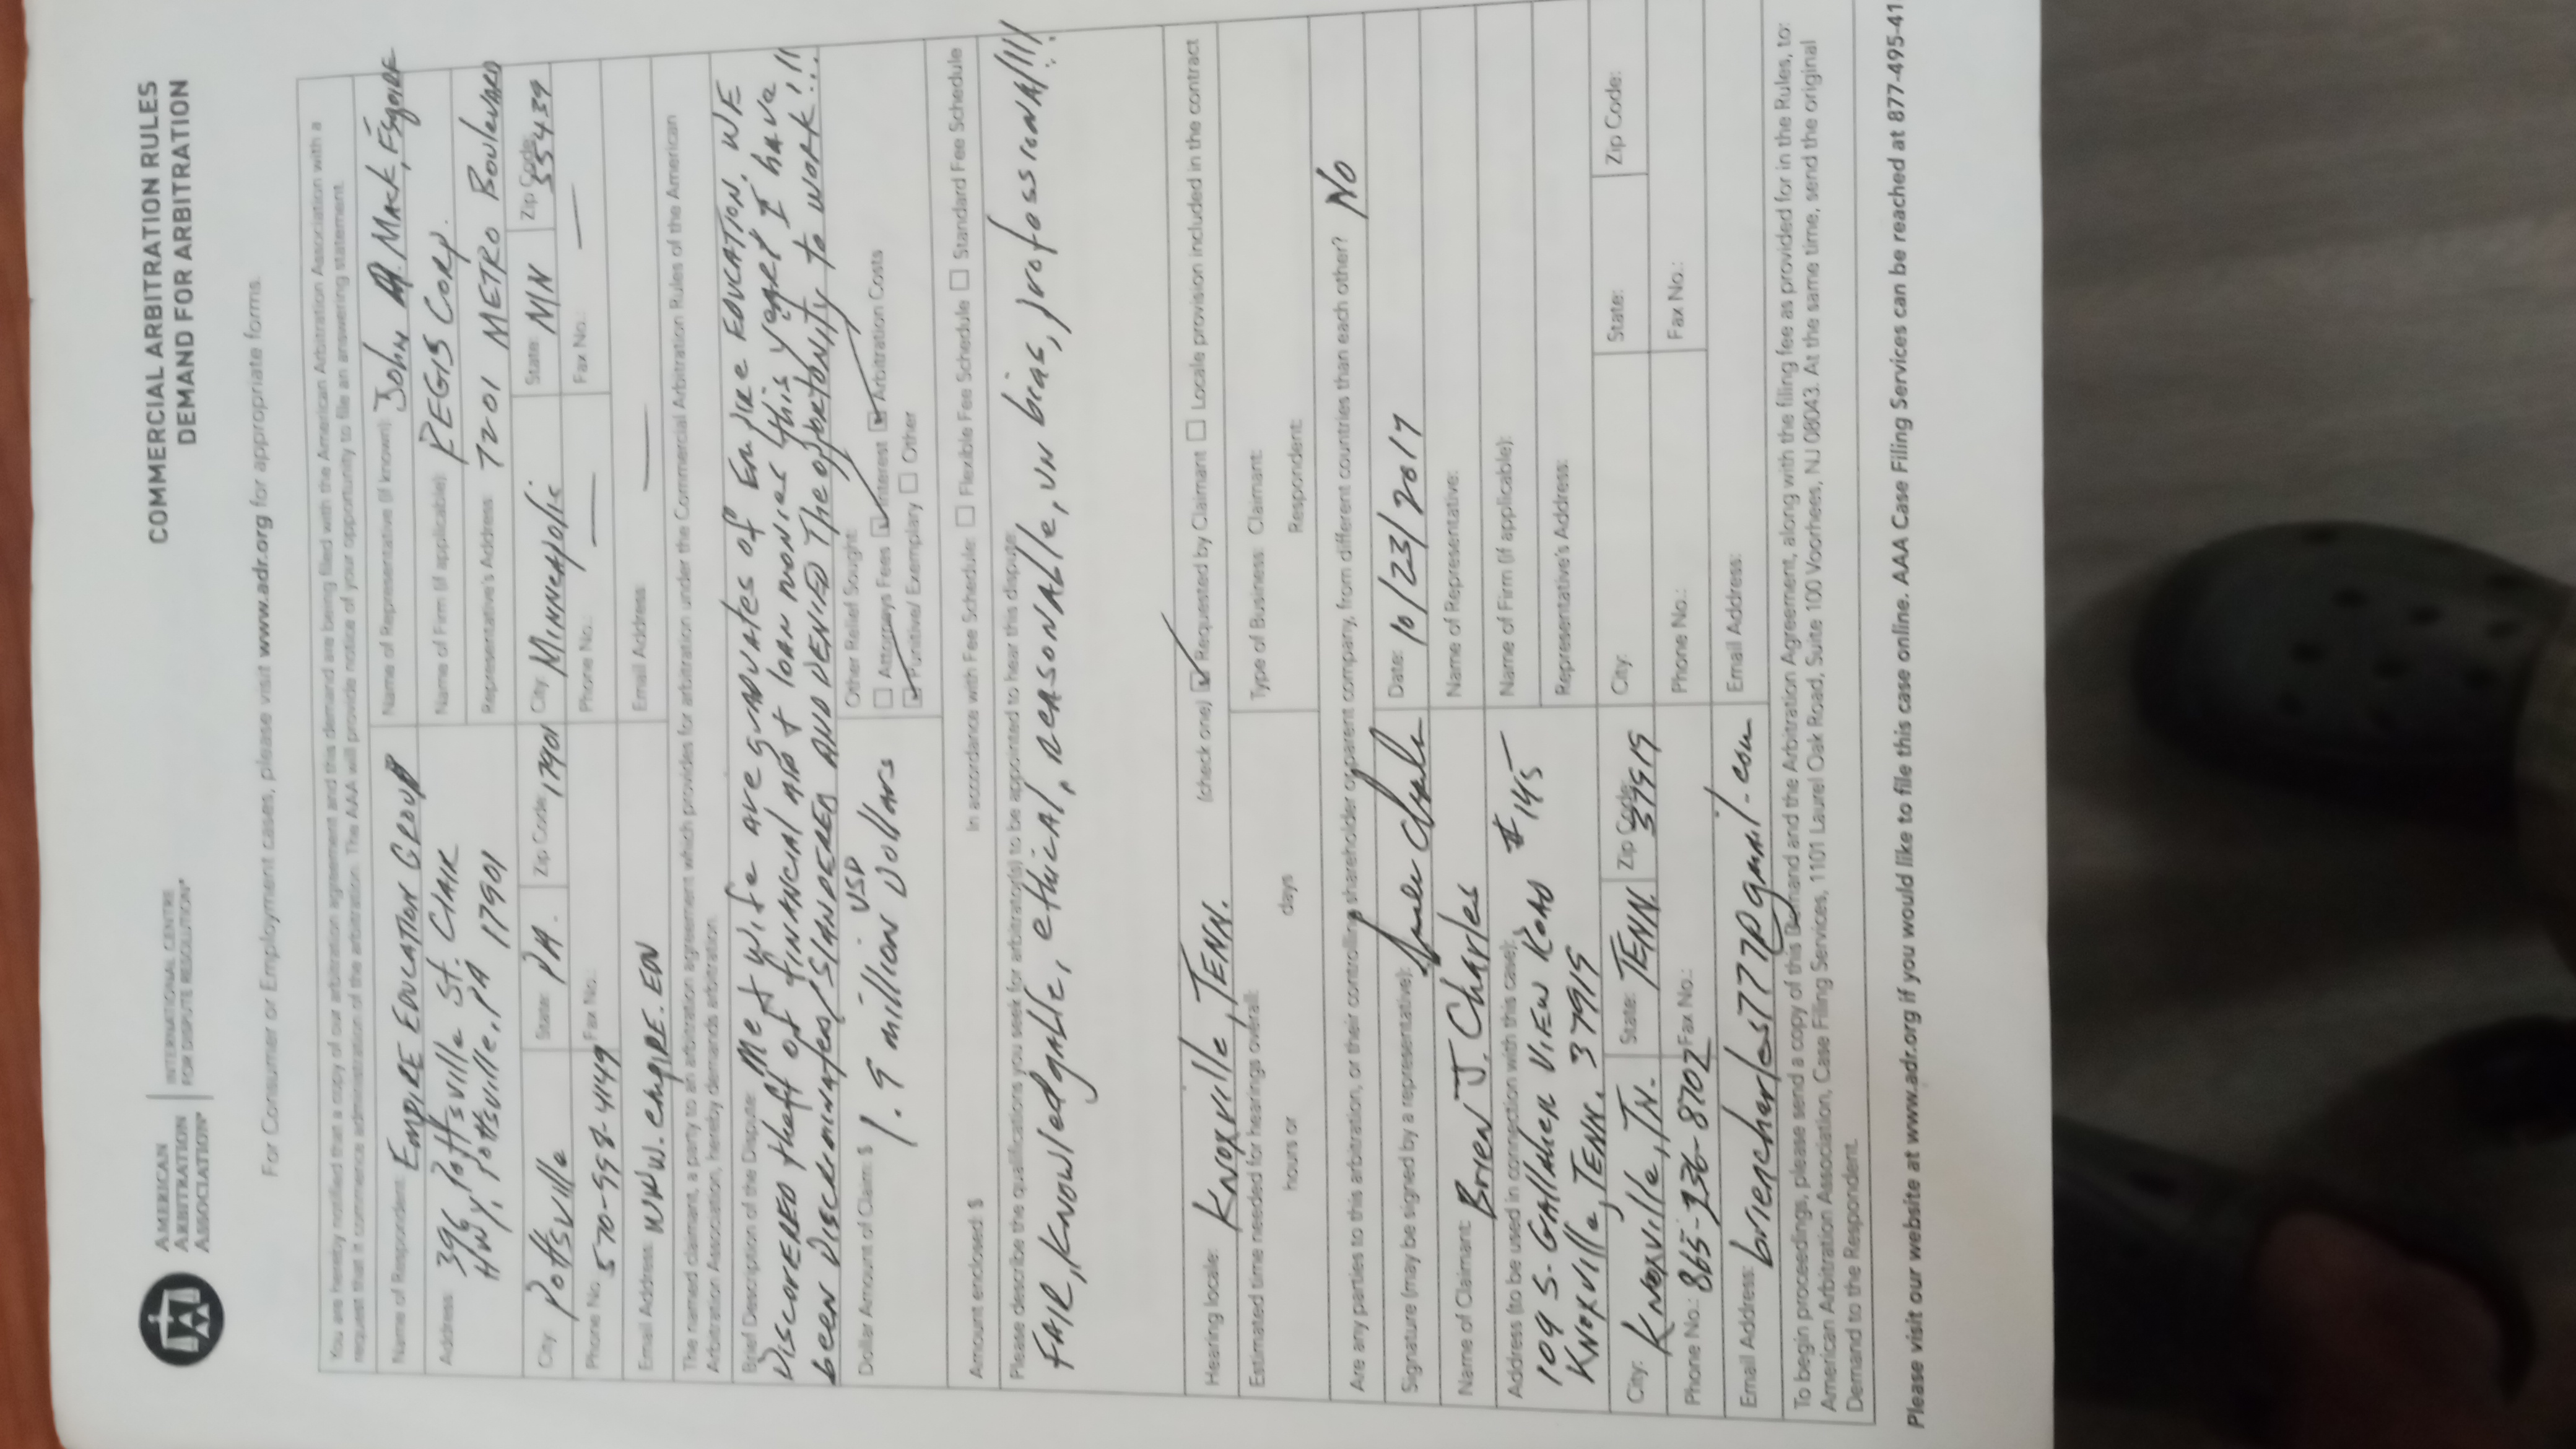 AMERICAN
ARBITRATION
ASSOCIATION®
INTERNATIONAL CENTRE
FOR DISPUTE RESOLUTION®
COMMERCIAL ARBITRATION RULES
DEMAND FOR ARBITRATION
For Consumer or Employment cases, please visit www.adr.org for appropriate forms.
You are hereby notified that a copy of our arbitration agreement and this demand are being filed with the American Arbitration Association with a
request that it commence administration of the arbitration. The AAA will provide notice of your opportunity to file an answering statement.
Name of Respondent: EMPIRE EDUCATION GROUP
Name of Representative (if known): John A. Mack, Esquire
Address: 396 Pottsville St. Clair
Hwy, Pottsville, PA 17901
Name of Firm (if applicable): REGIS Corp.
Representative's Address: 7201 METRO Boulevard
City: Pottsville State: PA. Zip Code: 17901
City: Minneapolis State: MN Zip Code: 55439
Phone No. 570-998-4149 Fax No.:
Phone No.: — Fax No.: —
Email Address: www.empire.EDU
Email Address: —
The named claimant, a party to an arbitration agreement which provides for arbitration under the Commercial Arbitration Rules of the American
Arbitration Association, hereby demands arbitration.
Brief Description of the Dispute: Me & wife are graduates of Empire EDUCATION. WE
DISCOVERED theft of financial aid & loan monies this year! I have
been Discriminated/SLANDERED AND DENIED The opportunity to work!!!
Dollar Amount of Claim: $ 1.9 million USD Dollars
Other Relief Sought:
Attorneys Fees Interest Arbitration Costs
Punitive/ Exemplary Other
Amount enclosed: $ In accordance with Fee Schedule: Flexible Fee Schedule Standard Fee Schedule
Please describe the qualifications you seek for arbitrator(s) to be appointed to hear this dispute:
FAIR, Knowledgable, ethical, REASONABle, un bias, professional!!!
Hearing locale: Knoxville, TENN. (check one) Requested by Claimant Locale provision included in the contract
Estimated time needed for hearings overall:
hours or days
Type of Business: Claimant:
Respondent:
Are any parties to this arbitration, or their controlling shareholder or parent company, from different countries than each other? No
Signature (may be signed by a representative): Date: 10/23/2017
Name of Claimant: Brien J. Charles
Name of Representative:
Address (to be used in connection with this case): #145
109 S. Gallaher View Road
Knoxville, TENN. 37919
Name of Firm (if applicable):
Representative's Address:
City: Knoxville, TN. State: TENN. Zip Code: 37919
City: State: Zip Code:
Phone No.: 865-236-8702 Fax No.:
Phone No.: Fax No.:
Email Address: briencharles777@gmail.com
Email Address:
To begin proceedings, please send a copy of this Demand and the Arbitration Agreement, along with the filing fee as provided for in the Rules, to:
American Arbitration Association, Case Filing Services, 1101 Laurel Oak Road, Suite 100 Voorhees, NJ 08043. At the same time, send the original
Demand to the Respondent.
Please visit our website at www.adr.org if you would like to file this case online. AAA Case Filing Services can be reached at 877-495-41